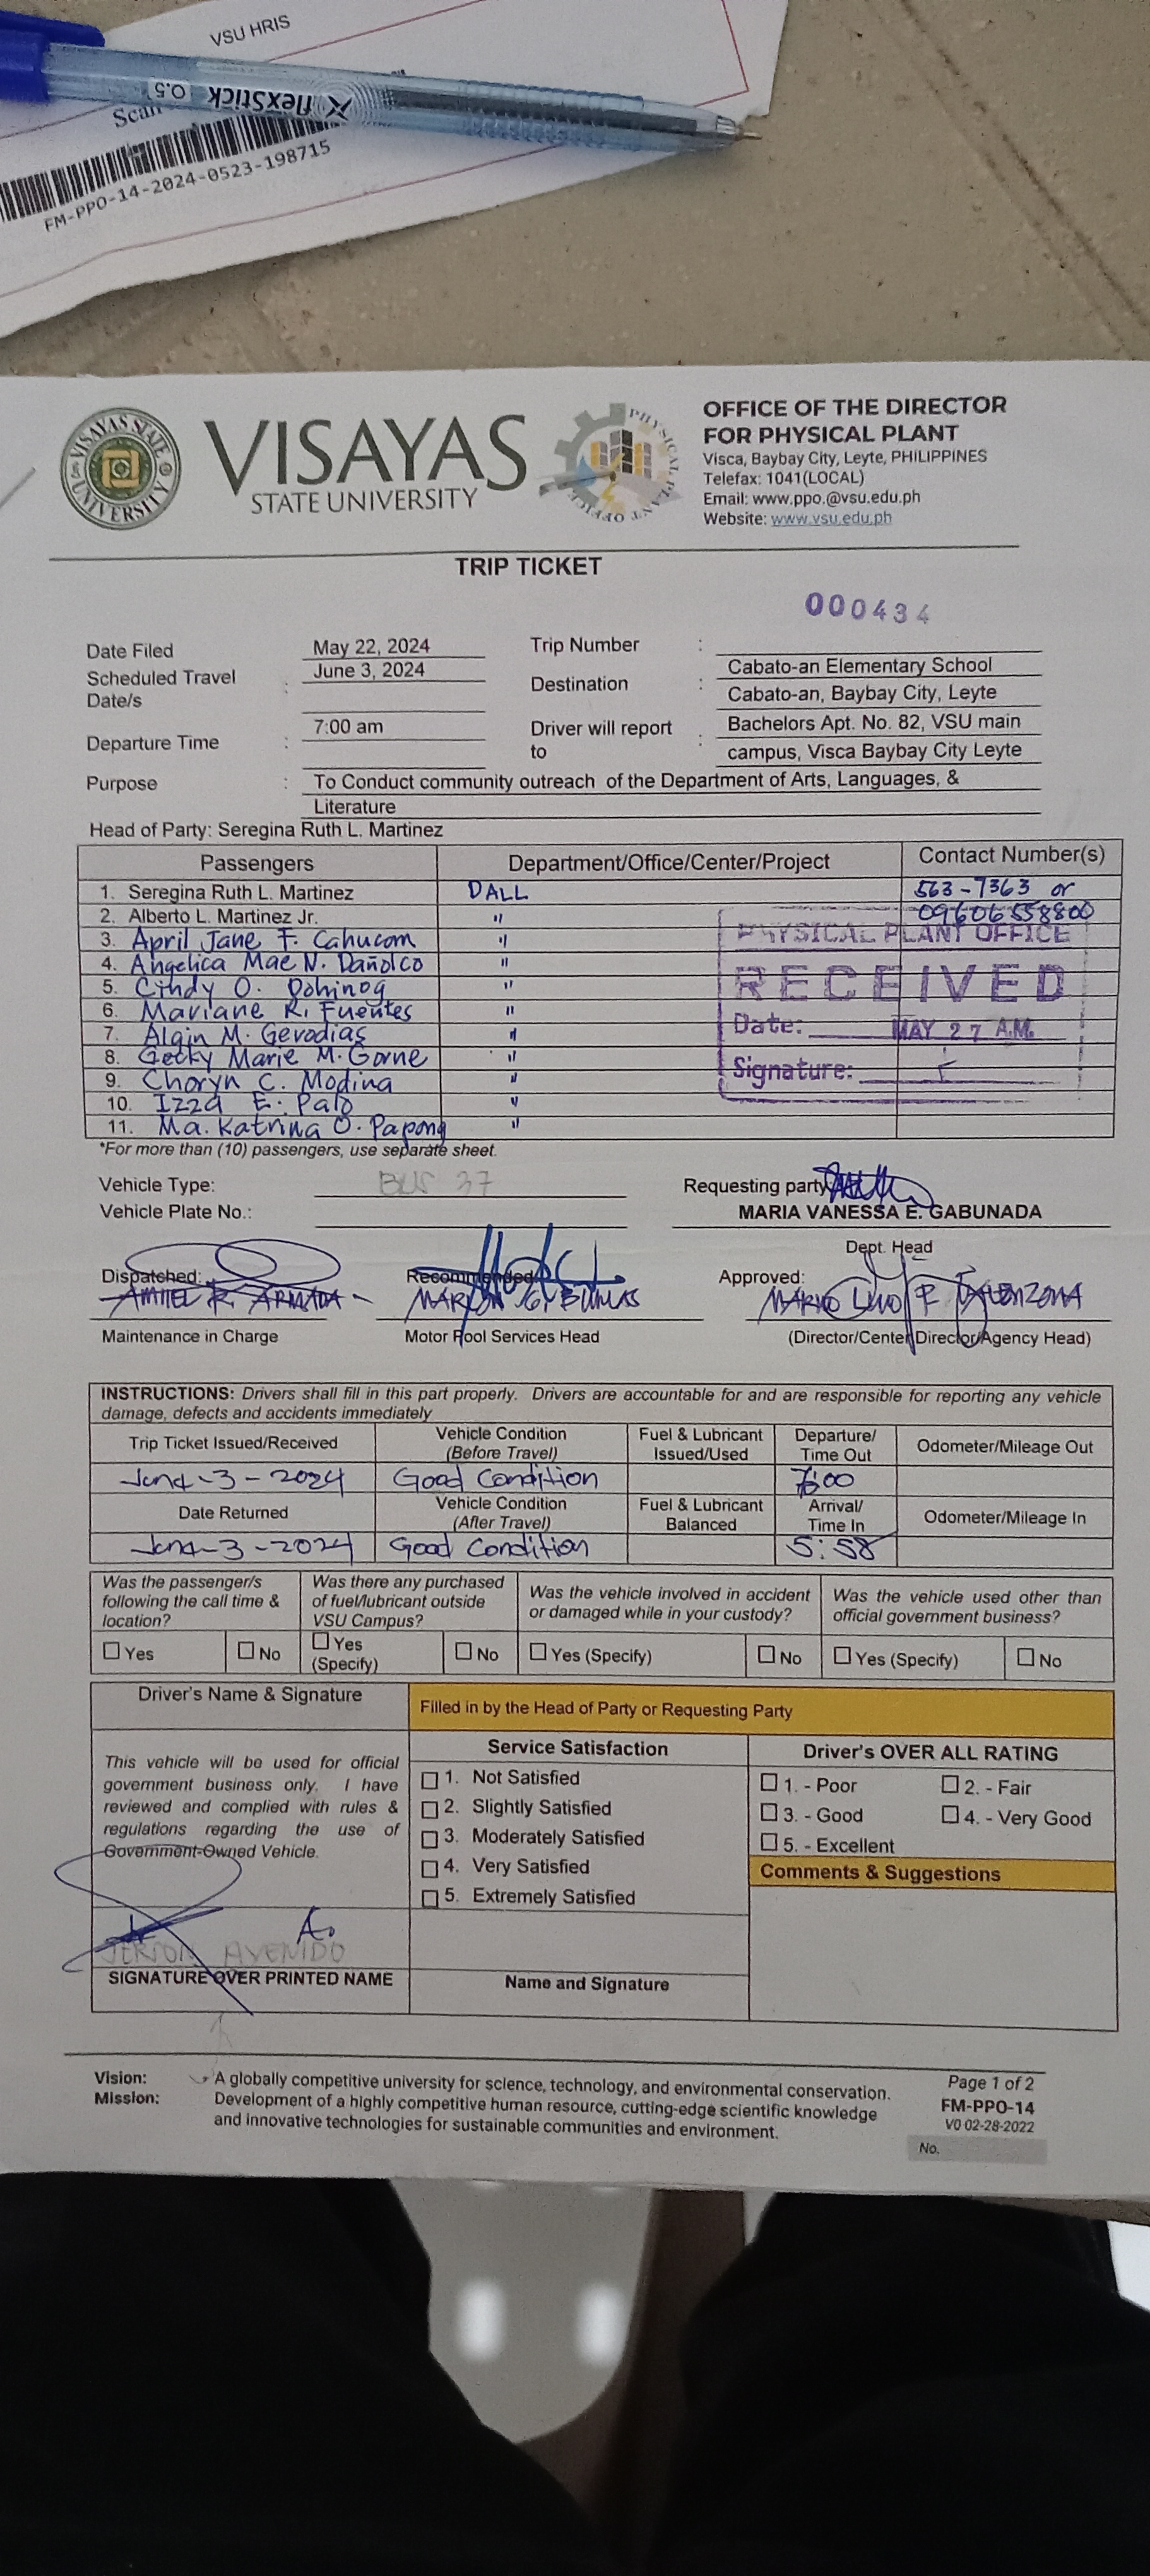 VSU HRIS
Scan
flexStick 0.5
FM-PPO-14-2024-0523-198715
VISAYAS STATE UNIVERSITY
VISAYAS
STATE UNIVERSITY
PHYSICAL PLANT OFFICE
OFFICE OF THE DIRECTOR
FOR PHYSICAL PLANT
Visca, Baybay City, Leyte, PHILIPPINES
Telefax: 1041(LOCAL)
Email: www.ppo.@vsu.edu.ph
Website: www.vsu.edu.ph
TRIP TICKET
000434
Date Filed May 22, 2024 Trip Number :
Scheduled Travel Date/s : June 3, 2024 Destination : Cabato-an Elementary School
Cabato-an, Baybay City, Leyte
Departure Time : 7:00 am Driver will report to : Bachelors Apt. No. 82, VSU main
campus, Visca Baybay City Leyte
Purpose : To Conduct community outreach of the Department of Arts, Languages, &
Literature
Head of Party: Seregina Ruth L. Martinez
Passengers Department/Office/Center/Project Contact Number(s)
1. Seregina Ruth L. Martinez DALL 563-7363 or
2. Alberto L. Martinez Jr. " 09606558800
3. April Jane F. Cahucom "
4. Angelica Mae N. Dañolco "
5. Cindy O. Dohinog "
6. Mariane R. Fuentes "
7. Algin M. Gerodias "
8. Gecky Marie M. Gorne "
9. Choryn C. Modina "
10. Izza E. Palo "
11. Ma. Katrina O. Papong "
PHYSICAL PLANT OFFICE
RECEIVED
Date: MAY 27 A.M.
Signature:
*For more than (10) passengers, use separate sheet.
Vehicle Type: BUS 37 Requesting party
Vehicle Plate No.: MARIA VANESSA E. GABUNADA
Dept. Head
Dispatched: Recommended: Approved:
R. ARMADA MARLON G. BURLAS MARIO LINO P.
Maintenance in Charge Motor Pool Services Head (Director/Center Director/Agency Head)
INSTRUCTIONS: Drivers shall fill in this part properly. Drivers are accountable for and are responsible for reporting any vehicle
damage, defects and accidents immediately
Trip Ticket Issued/Received Vehicle Condition (Before Travel) Fuel & Lubricant Issued/Used Departure/ Time Out Odometer/Mileage Out
June-3-2024 Good Condition 7:00
Date Returned Vehicle Condition (After Travel) Fuel & Lubricant Balanced Arrival/ Time In Odometer/Mileage In
June-3-2024 Good Condition 5:58
Was the passenger/s following the call time & location? Was there any purchased of fuel/lubricant outside VSU Campus? Was the vehicle involved in accident or damaged while in your custody? Was the vehicle used other than official government business?
Yes No Yes (Specify) No Yes (Specify) No Yes (Specify) No
Driver's Name & Signature Filled in by the Head of Party or Requesting Party
This vehicle will be used for official
government business only. I have
reviewed and complied with rules &
regulations regarding the use of
Government-Owned Vehicle.
JERTON AVENIDO
SIGNATURE OVER PRINTED NAME
Service Satisfaction
1. Not Satisfied
2. Slightly Satisfied
3. Moderately Satisfied
4. Very Satisfied
5. Extremely Satisfied
Name and Signature
Driver's OVER ALL RATING
1. - Poor 2. - Fair
3. - Good 4. - Very Good
5. - Excellent
Comments & Suggestions
Vision: A globally competitive university for science, technology, and environmental conservation.
Mission: Development of a highly competitive human resource, cutting-edge scientific knowledge
and innovative technologies for sustainable communities and environment.
Page 1 of 2
FM-PPO-14
V0 02-28-2022
No.